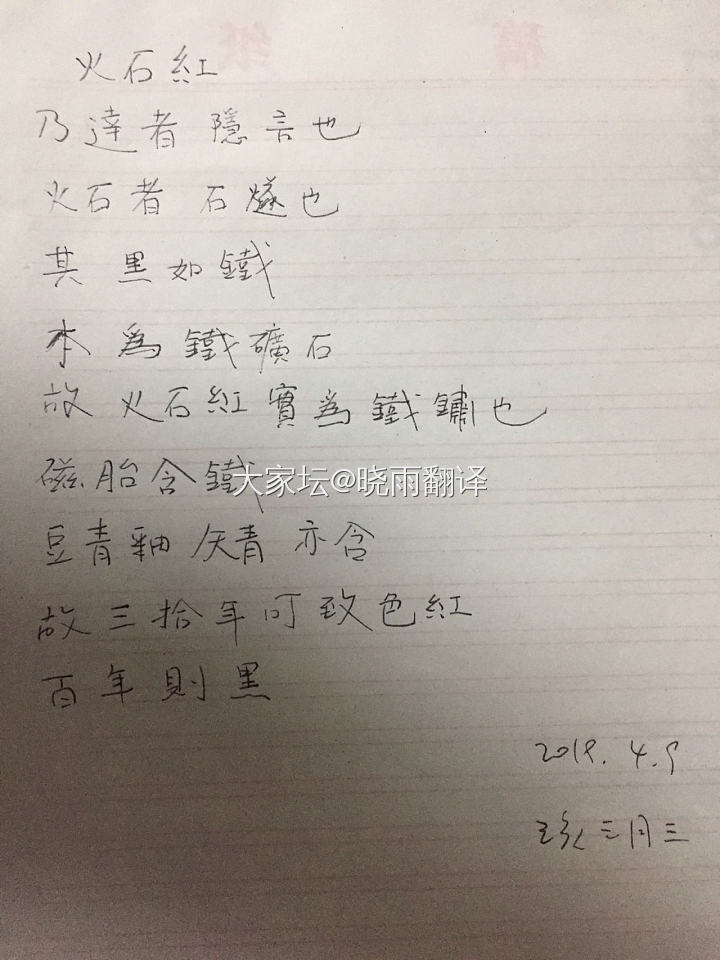 火石紅
乃達者 隱言也
火石者 石燧也
其黑如鐵
本為鐵礦石
故火石紅實為鐵鏽也
磁胎含鐵
大家坛@晓雨翻译
豆青釉 灰青 亦含
故三拾年可致色紅
百年則黑
2019.4.9
己亥三月三